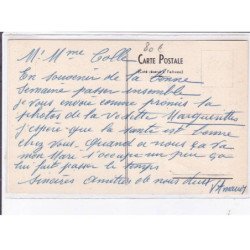 Mr Mme Colle
80 €
CARTE POSTALE
En souvenir de la bonne
semaine passer ensemble
je vous envoie comme promis la
photos de la vedette Marguerite
j'espère que la santé est bonne
chez vous. Quand a nous ça va
mon Mari s'occupe un peu ça
lui fait passer le temps
Sincères amitiés de nous deux